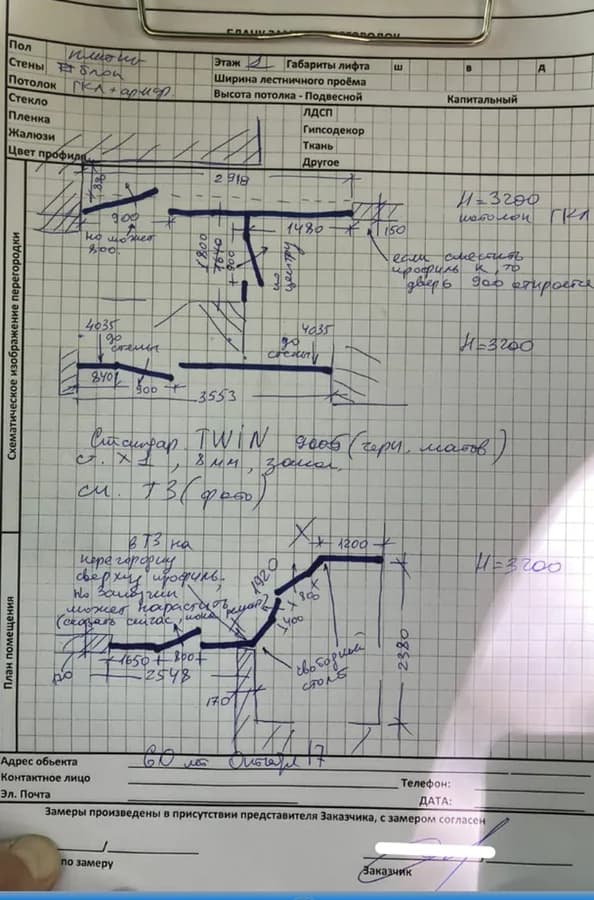 Пол плитка
Этаж 1 Габариты лифта ш в д
Стены блок
Ширина лестничного проёма
Потолок ГКЛ + армстр.
Высота потолка - Подвесной Капитальный
Стекло ЛДСП
Пленка Гипсодекор
Жалюзи Ткань
Цвет профиля Другое
Схематическое изображение перегородки
2918
880
H=3200
потолок ГКЛ
900
1480
150
но может
800.
1800
1640
900
по центру
если сместить
профиль к, то
дверь 900 откроется
4035
до стены
4035
до стены
H=3200
840
900
3553
Стандар. TWIN 9005 (черн. матов)
ст. x1, 8 мм, закал.
см. ТЗ (фото)
План помещения
в ТЗ на
перегородку
сверху профиль,
может нарастить
X
1200
1920
800
400
H=3200
свободный
столб
2380
1650
800
2548
170
Адрес объекта 60 лет Октября 17
Контактное лицо Телефон:
Эл. Почта ДАТА:
Замеры произведены в присутствии представителя Заказчика, с замером согласен
по замеру
Заказчик